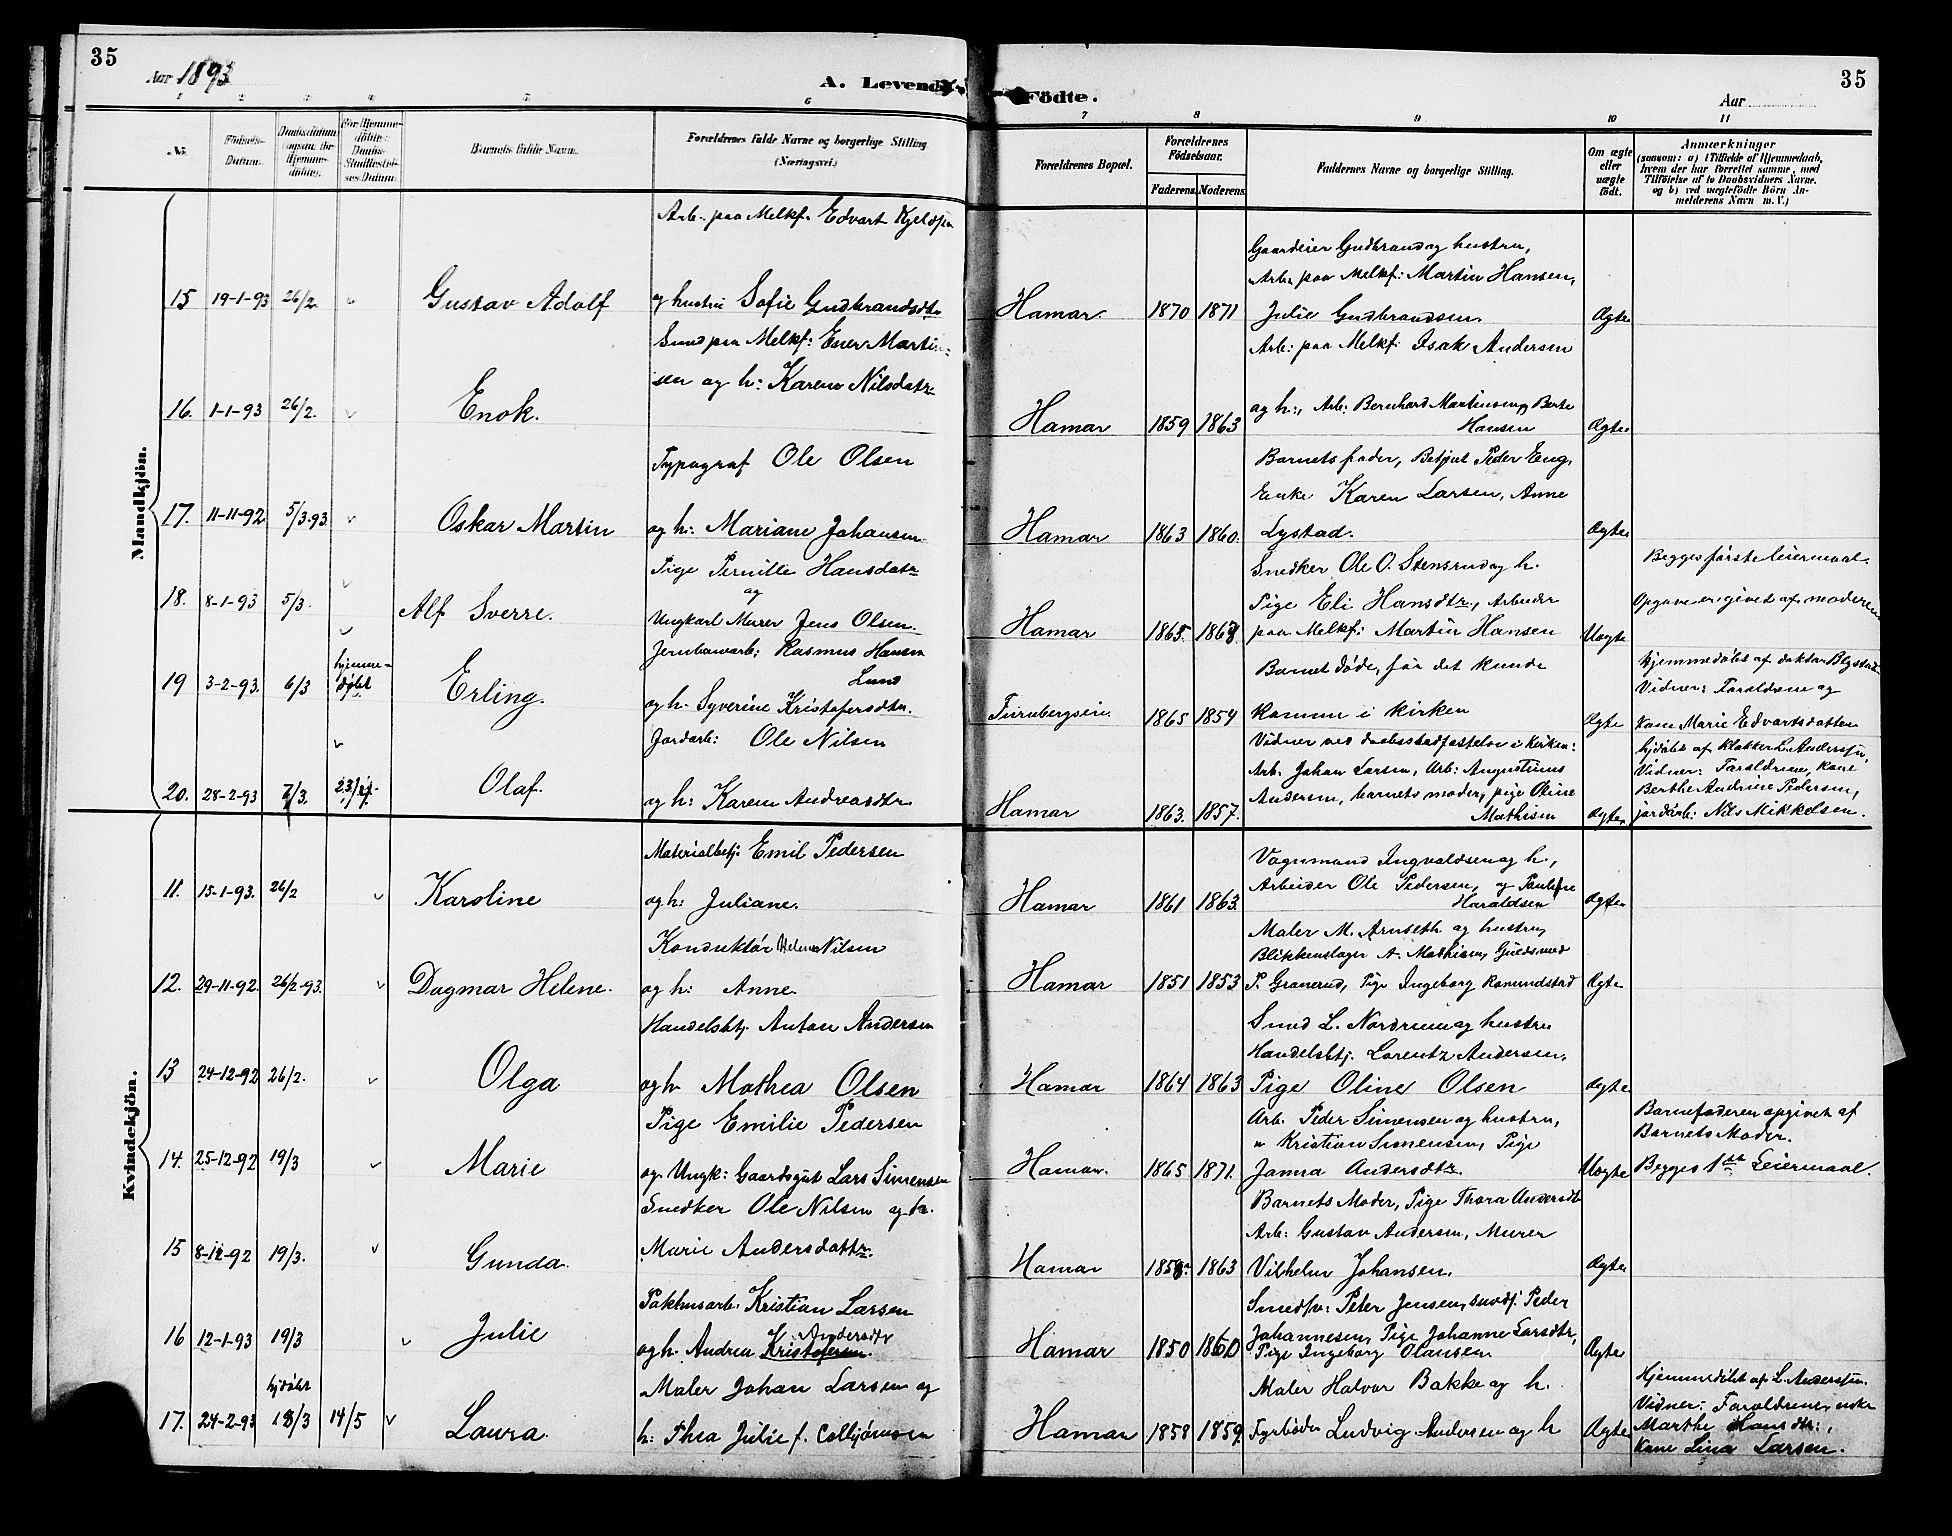 35
Aar 1893
A. Levende
Födte.
Aar
35
1 2 3 4 5 6 7 8 9 10 11
No.
Födsels-
Datum.
Daabsdatum
Barnets fulde Navn.
Forældrenes fulde Navne og borgerlige Stilling
(Næringsvei.)
Forældrenes Bopæl.
Forældrenes
Födselsaar.
Faderens. Moderens.
Faddernes Navne og borgerlige Stilling.
Om ægte
eller
uægte
født.
Anmærkninger
(saasom: a) i Tilfælde af Hjemmedaab,
hvem der har forrettet samme, med
Tilföielse af to Daabsvidners Navne,
og b) ved uægtefödte Börn An-
melderens Navn m. V.)
Mandkjön.
Arb. paa Melkf. Edvart Kjeldsen
15 19-1-93 26/2. Gustav Adolf og hustru Sofie Gudbrandsdtr
Hamar. 1870 1871
Gaardeier Gudbrand og hustru,
Arb. paa Melkf: Martin Hansen,
Julie Gudbrandsen. Ægte
Smed paa Melkf: Ener Martin-
sen og h: Karen Nilsdatr
16. 1-1-93 26/2. Enok.
Hamar 1859 1863
Arb: paa Melkf. Isak Andersen
og h:, Arb: Bernhard Martinsen, Berte
Hansen Ægte
Typograf Ole Olsen
17. 11-11-92. 5/3.93. Oskar Martin og h: Mariane Johansen
Hamar 1863 1860.
Barnets fader, Betjent Peder Eng,
Enke Karen Larsen, Anne
Lystad. Ægte
Pige Pernille Hansdatr
og
18. 8-1-93 5/3. Alf Sverre. Ungkarl Murer Jens Olsen.
Hamar 1865. 1868.
Snedker Ole O. Stensrud og h.
Pige Eli Hansdtr, Arbeider
paa Melkf: Martin Hansen Uægte
Begges første leiermaal.
Opgave er givet af moderen
Jernbanearb: Rasmus Hansen
Lund
19 3-2-93. 6/3 hjemme-
døbt Erling. og h. Syverine Kristofersdtr.
Furubergseie. 1865 1854
Barnet døde, før det kunde
komme i kirken Ægte
hjemmedøbt af doktor Blystad
Vidner: Forældrene og
kone Marie Edvartsdatter
Jordarb: Ole Nilsen
20. 28-2-93 7/3. 23/4. Olaf. og h: Karen Andreasdtr
Hamar 1863. 1857.
Vidner ved daabsstadfæstelse i kirken:
Arb. Johan Larsen, Arb: Augustinus
Andersen, barnets moder, pige Oline
Mathisen Ægte
hjdøbt af klokker L. Anderssen,
Vidner: Forældrene, kone
Berthe Andrine Pedersen,
jordarb: Nils Mikkelsen.
Kvindekjön.
Materialbetj. Emil Pedersen
11. 15-1-93. 26/2 Karoline og h: Juliane.
Hamar 1861 1863.
Vognmand Ingvaldsen og h.,
Arbeider Ole Pedersen, og Pauline
Haraldsen Ægte
Konduktør Helmer Nilsen
12. 29-11-92. 26/2-93. Dagmar Helene. og h: Anne.
Hamar 1851 1853
Maler M. Arnseth og hustru,
Blikkenslager A. Mathisen, Guldsmed
P. Granerud, Pige Ingeborg Romundstad Ægte
Handelsbtj. Anton Andersen
13 24-12-92 26/2. Olga og h. Mathea Olsen
Hamar 1864 1863
Smed L. Nordrum og hustru
Handelsbtj. Lorentz Andersen,
Pige Oline Olsen Ægte
Pige Emilie Pedersen
14. 25-12-92 19/3 Marie og Ungk: Gaardsgut Lars Simensen
Hamar. 1865 1871.
Arb. Peder Simensen og hustru,
" Kristian Simensen, Pige
Janna Andersdtr. Uægte
Barnefaderen opgivet af
Barnets Moder.
Begges 1ste Leiermaal.
Snedker Ole Nilsen og h.
15 8-12-92 19/3. Gunda. Marie Andersdattr.
Hamar 1858. 1863
Barnets Moder, Pige Thora Andersdtr
Arb: Gustav Andersen, Murer
Vilhelm Johansen. Ægte
Pakhusarb. Kristian Larsen
Andersdtr
16 12-1-93 19/3 Julie og h. Andrea Kristofersen.
Hamar 1850 1860.
Smedsv: Peter Jensen, Peder
Johannesen, Pige Johanne Larsdtr,
Pige Ingeborg Olausen. Ægte
Maler Johan Larsen og
hjdøbt
17. 24-2-93 18/3 14/5 Laura. h: Thea Julie f. Colbjørnsen
Hamar 1858 1859.
Maler Halvor Bakke og h.
Fyrbøder Ludvig Andersen og h Ægte
Hjemmedøbt af L. Anderssen.
Vidner: Forældrene, enke
Marthe Hansdtr:,
kone Lina Larsen.